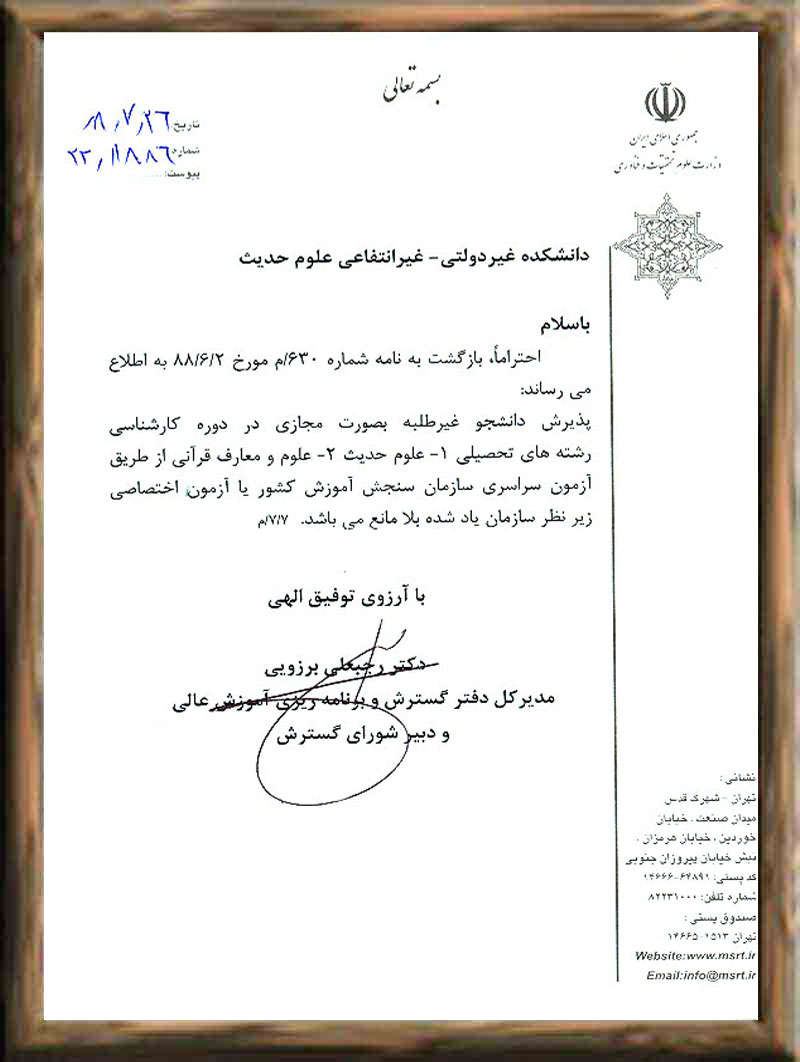 بسمه تعالی
جمهوری اسلامی ایران
وزارت علوم تحقیقات و فناوری
تاریخ:
شماره: ۲۳٫۱۱۸۸۶
پیوست: ......
دانشکده غیردولتی- غیرانتفاعی علوم حدیث
باسلام
احتراماً، بازگشت به نامه شماره ۶۳۰/م مورخ ۸۸/۶/۲ به اطلاع
می رساند:
پذیرش دانشجو غیرطلبه بصورت مجازی در دوره کارشناسی
رشته های تحصیلی ۱- علوم حدیث ۲- علوم و معارف قرآنی از طریق
آزمون سراسری سازمان سنجش آموزش کشور یا آزمون اختصاصی
زیر نظر سازمان یاد شده بلا مانع می باشد. ۷/۷/م
با آرزوی توفیق الهی
دکتر رجبعلی برزویی
مدیرکل دفتر گسترش و برنامه ریزی آموزش عالی
و دبیر شورای گسترش
نشانی :
تهران - شهرک قدس
میدان صنعت ، خیابان
خوردین ، خیابان هرمزان ،
نبش خیابان پیروزان جنوبی
کد پستی: ۶۴۸۹۱-۱۴۶۶۶
شماره تلفن: ۸۲۲۳۱۰۰۰
صندوق پستی :
تهران ۱۵۱۳-۱۴۶۶۵
Website:www.msrt.ir
Email:info@msrt.ir